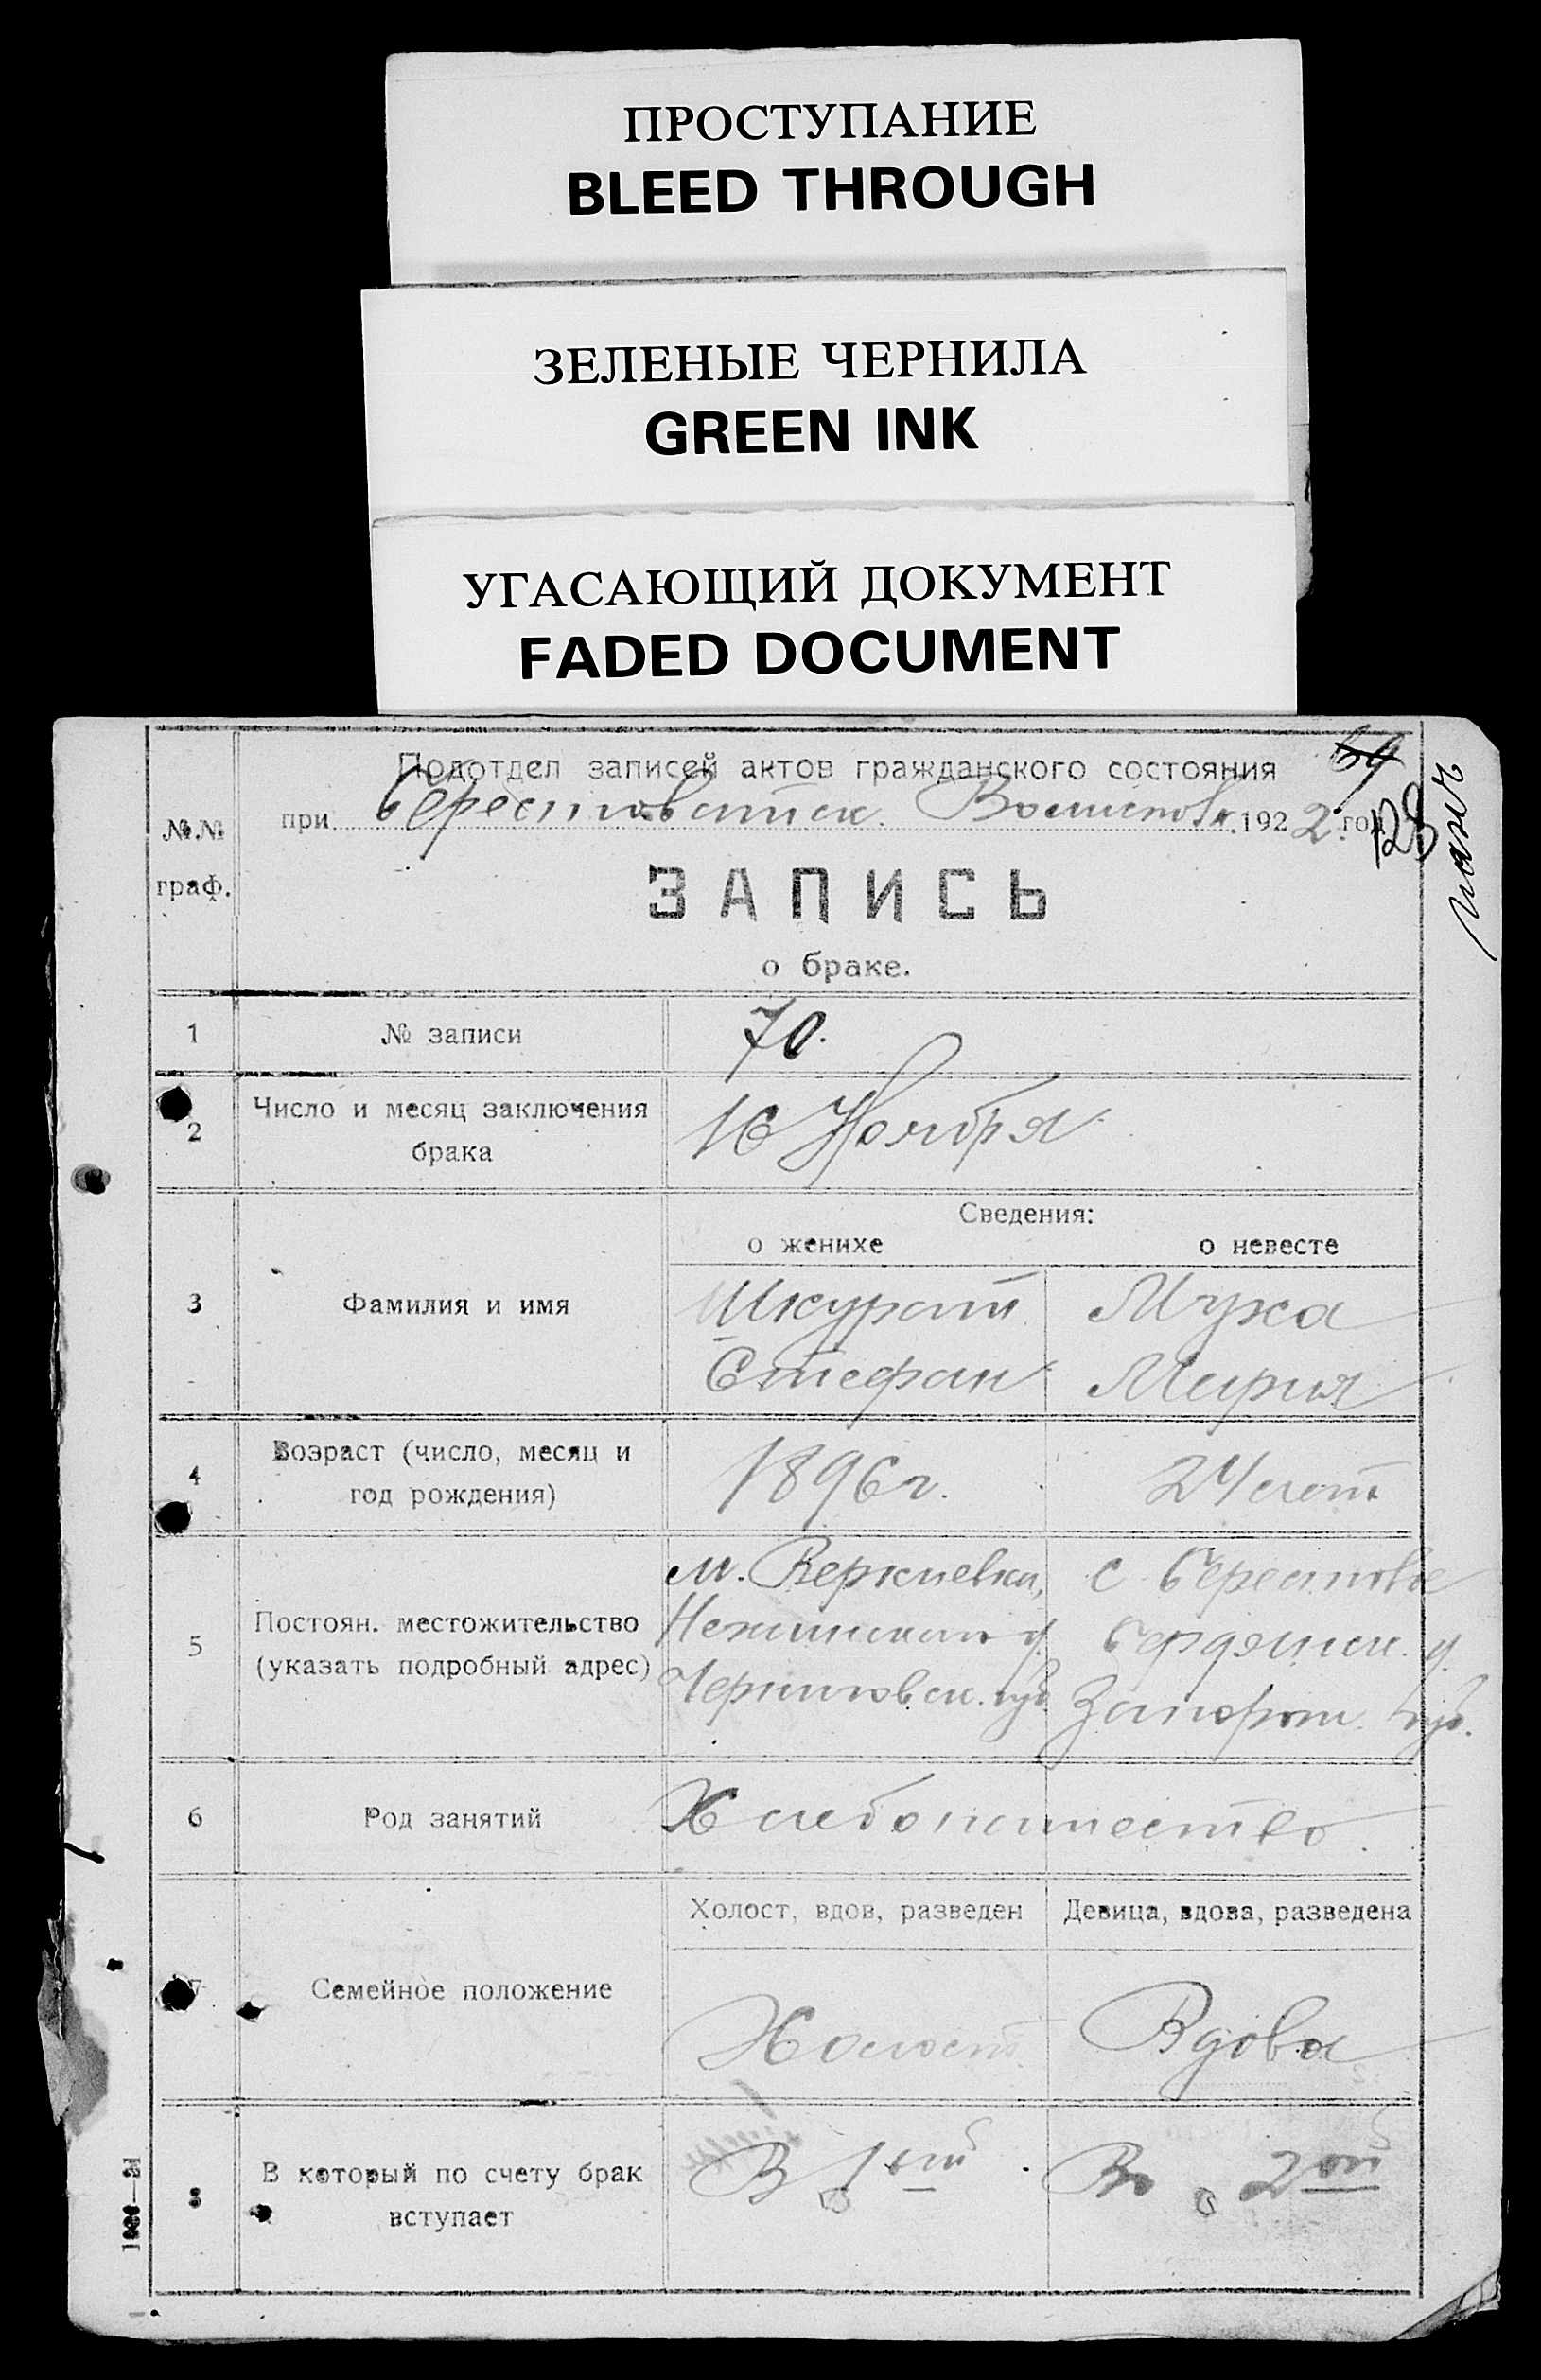 ПРОСТУПАНИЕ
BLEED THROUGH
ЗЕЛЕНЫЕ ЧЕРНИЛА
GREEN INK
УГАСАЮЩИЙ ДОКУМЕНТ
FADED DOCUMENT
69
Подотдел записей актов гражданского состояния
при Берестоватск. Волисполк. 1922 год
128
№.№
граф.
ЗАПИСЬ
о браке.
1
№ записи
70.
2
Число и месяц заключения
брака
16 Ноября
Сведения:
о женихе
о невесте
3
Фамилия и имя
Шкурат
Стефан
Муха
Мария
4
Возраст (число, месяц и
год рождения)
1896 г.
24 лет
5
Постоян. местожительство
(указать подробный адрес)
м. Веркиевки,
Нежинского у.
Черниговск. губ.
с Берестовое
Бердянск. у.
Запорож. губ.
6
Род занятий
Хлебопашество
7
Семейное положение
Холост, вдов, разведен
Девица, вдова, разведена
Холост
Вдова
8
В который по счету брак
вступает
В 1ый
Во 2ой